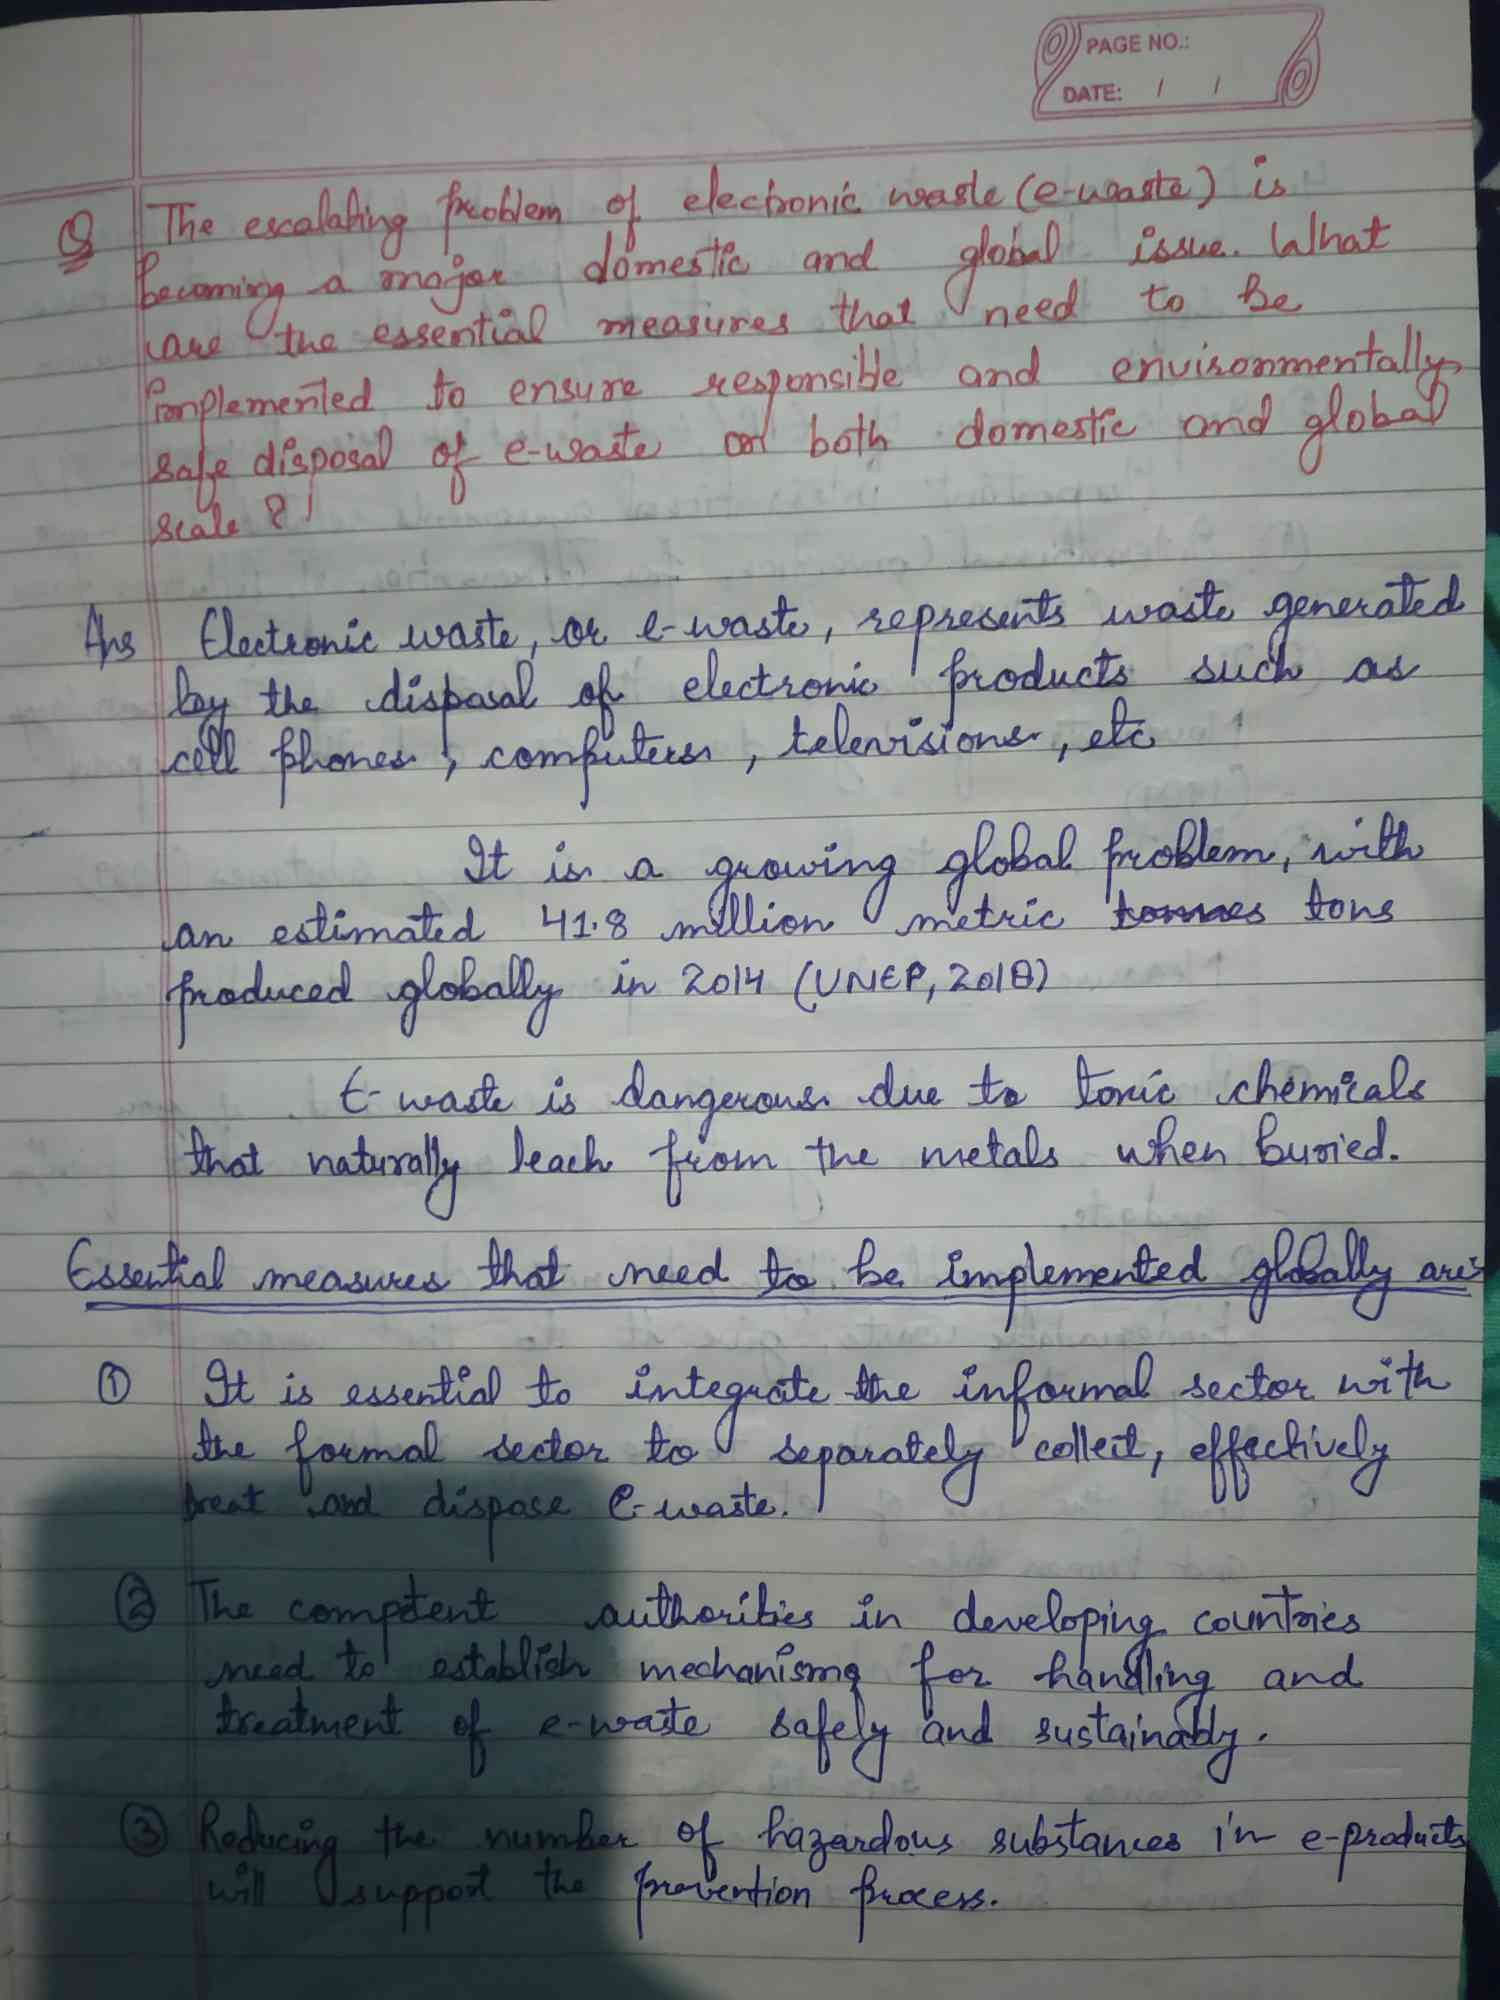 PAGE NO.:
DATE: / /
Q The escalating problem of electronic waste (e-waste) is
becoming a major domestic and global issue. What
are the essential measures that need to be
implemented to ensure responsible and environmentally
safe disposal of e-waste on both domestic and global
scale ?
Ans Electronic waste, or e-waste, represents waste generated
by the disposal of electronic products such as
cell phones, computers, televisions, etc
It is a growing global problem, with
an estimated 41.8 million metric tonnes tons
produced globally in 2014 (UNEP, 2018)
E-waste is dangerous due to toxic chemicals
that naturally leach from the metals when buried.
Essential measures that need to be implemented globally are:
① It is essential to integrate the informal sector with
the formal sector to separately collect, effectively
treat and dispose e-waste.
② The competent authorities in developing countries
need to establish mechanisms for handling and
treatment of e-waste safely and sustainably.
③ Reducing the number of hazardous substances in e-products
will support the prevention process.